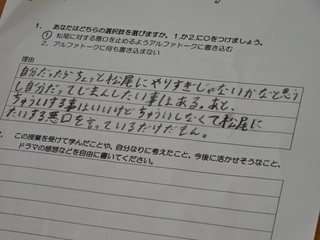 1. あなたはどちらの選択肢を選びますか。1か2に○をつけましょう。
① 松尾に対する悪口を止めるようアルファトークに書き込む
2、アルファトークに何も書き込まない
理由
自分だったらちょっと松尾にやりすぎじゃないかなと思う
し自分だってじまんしたい事はある。あと、
ちゅういする事はいいけどちゅういしなくて松尾に
たいする悪口を言っているだけだもん。
2. この授業を受けて学んだことや、自分なりに考えたこと、今後に活かせそうなこと、
ドラマの感想などを自由に書いてください。